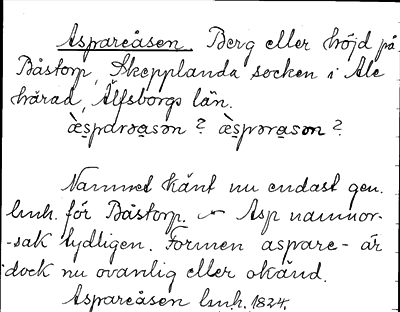 Aspareåsen. Berg eller höjd på
Båstorp, Skepplanda socken i Ale
härad, Älfsborgs län.
æ̀sparəasən ? æ̀sprərasən ?
Namnet känt nu endast gen.
lmh. för Båstorp. Asp namnor-
-sak tydligen. Formen aspare- är
dock nu ovanlig eller okänd.
Aspareåsen lmh. 1824.